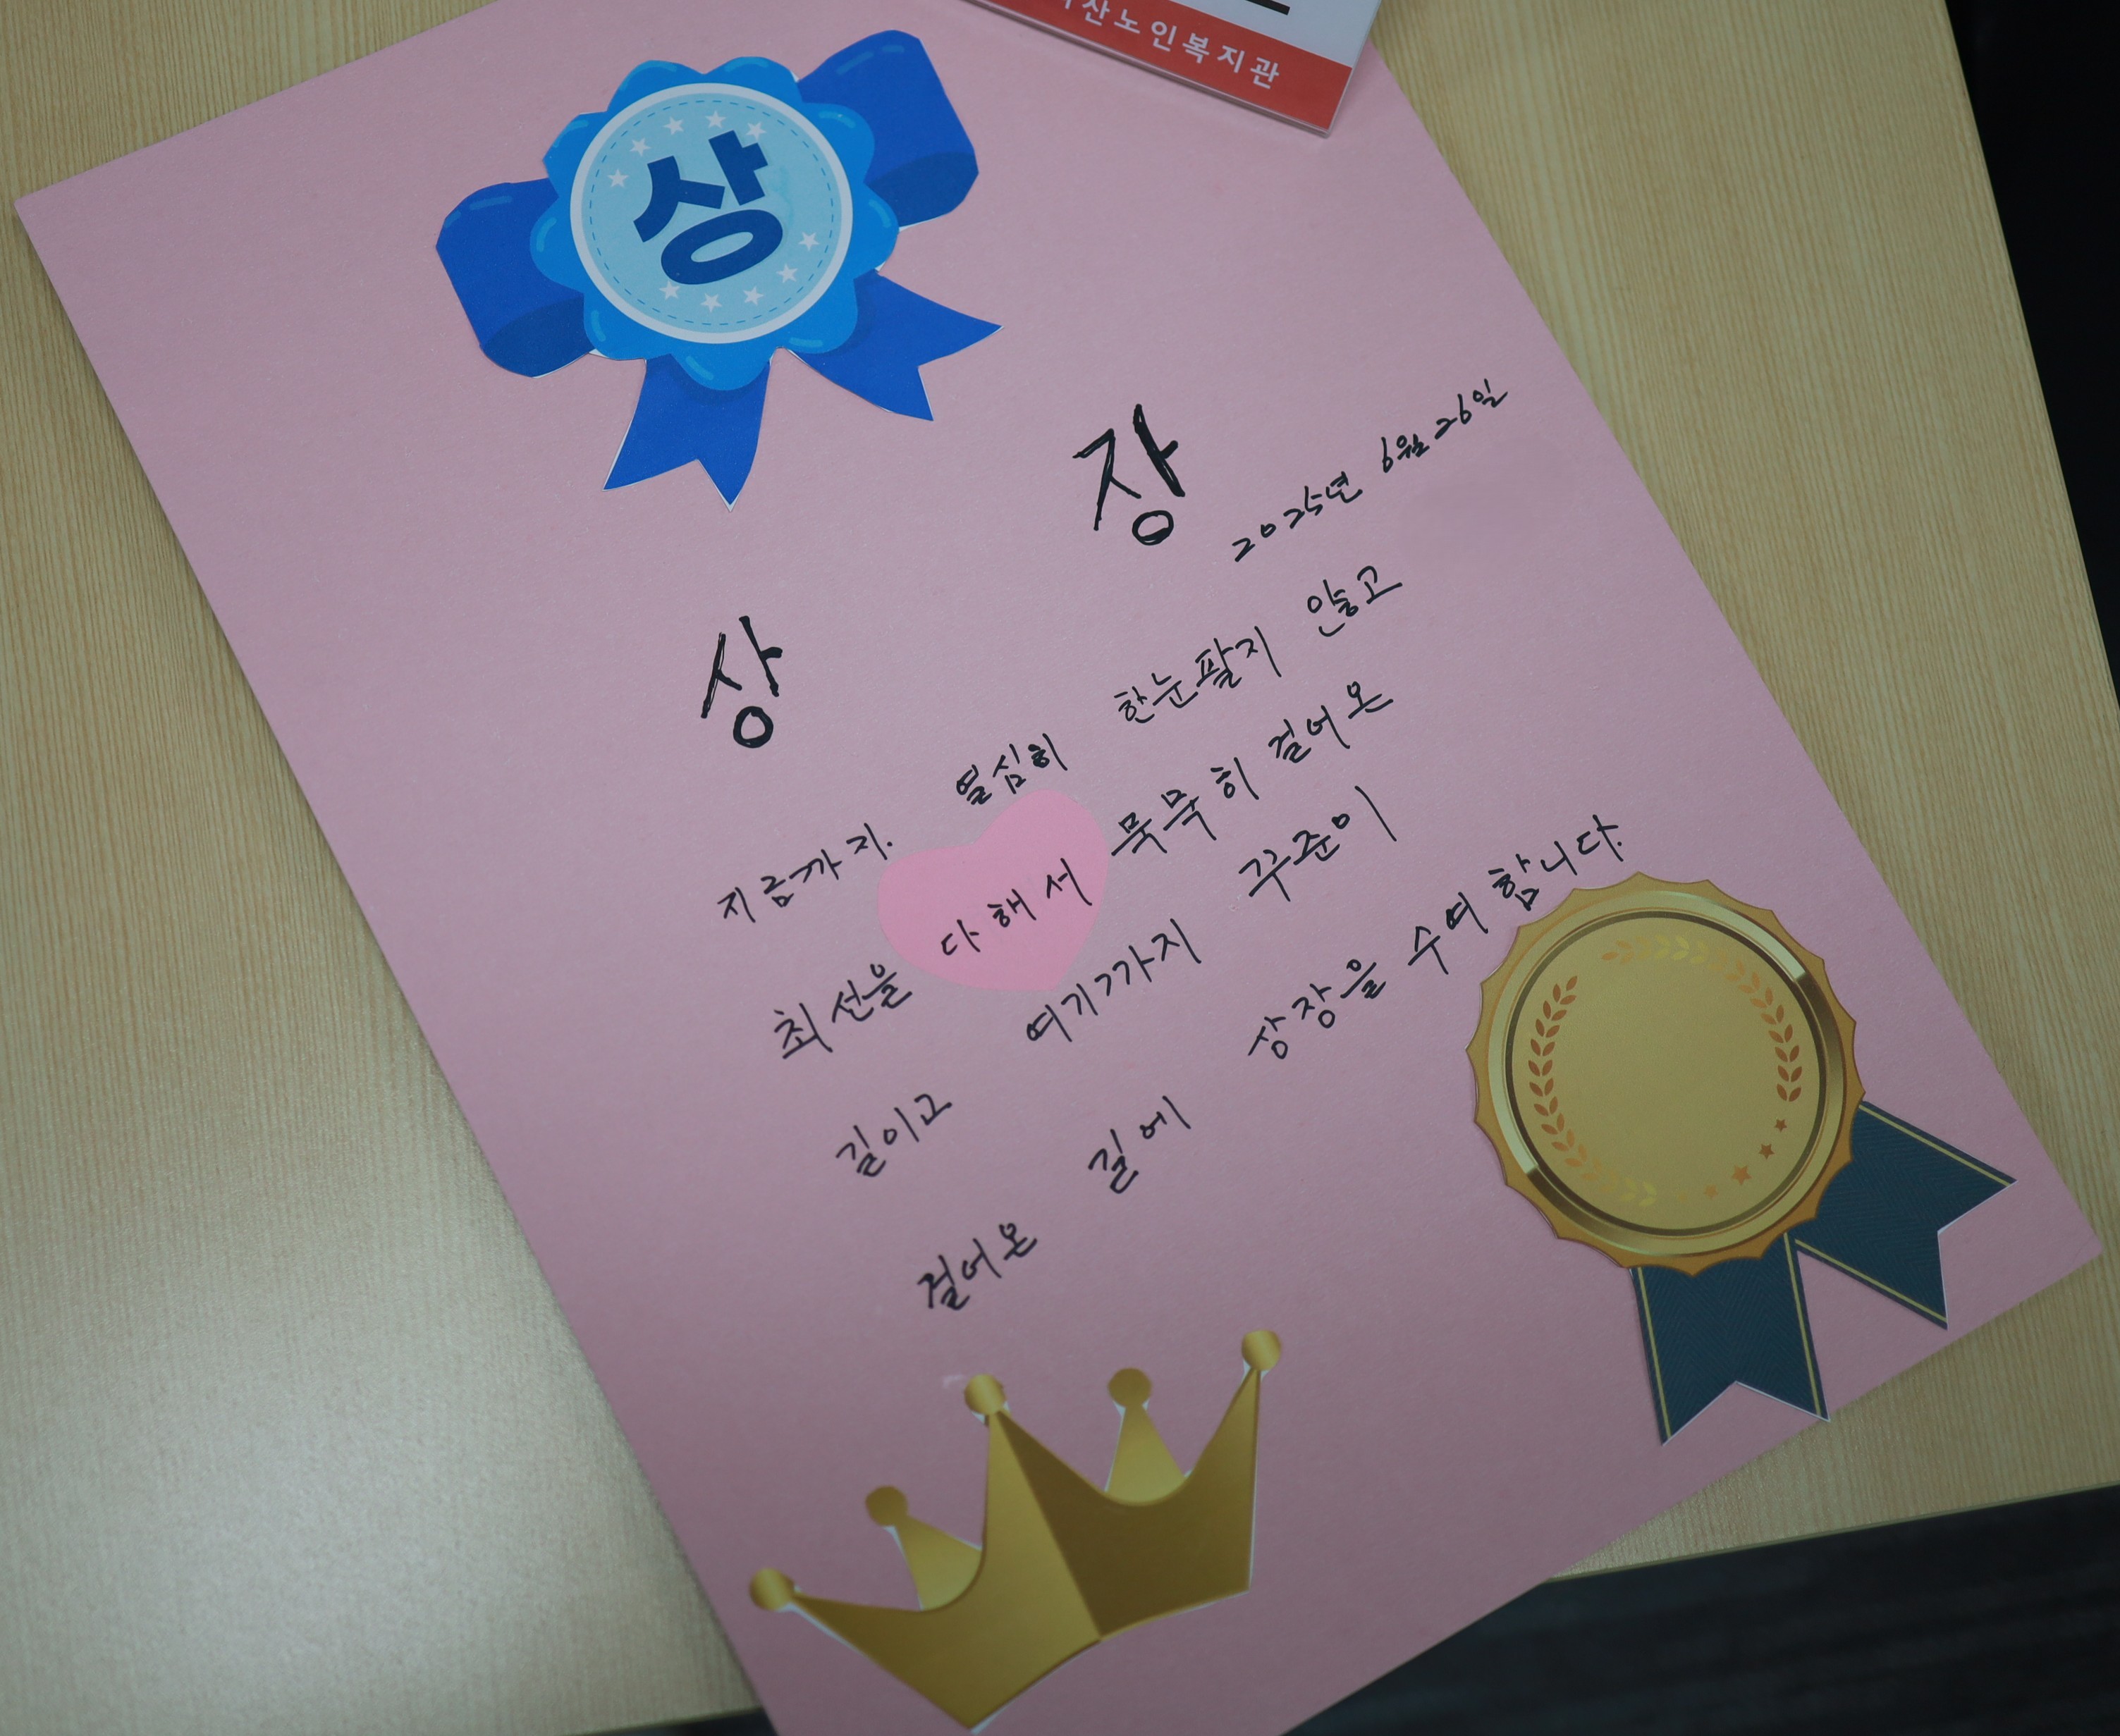 산노인복지관
상
상 장
2025년 6월 26일
지금까지. 열심히 한눈팔지 않고
최선을 다해서 묵묵히 걸어온
길이고 여기까지 꾸준이
걸어온 길에 상장을 수여합니다.